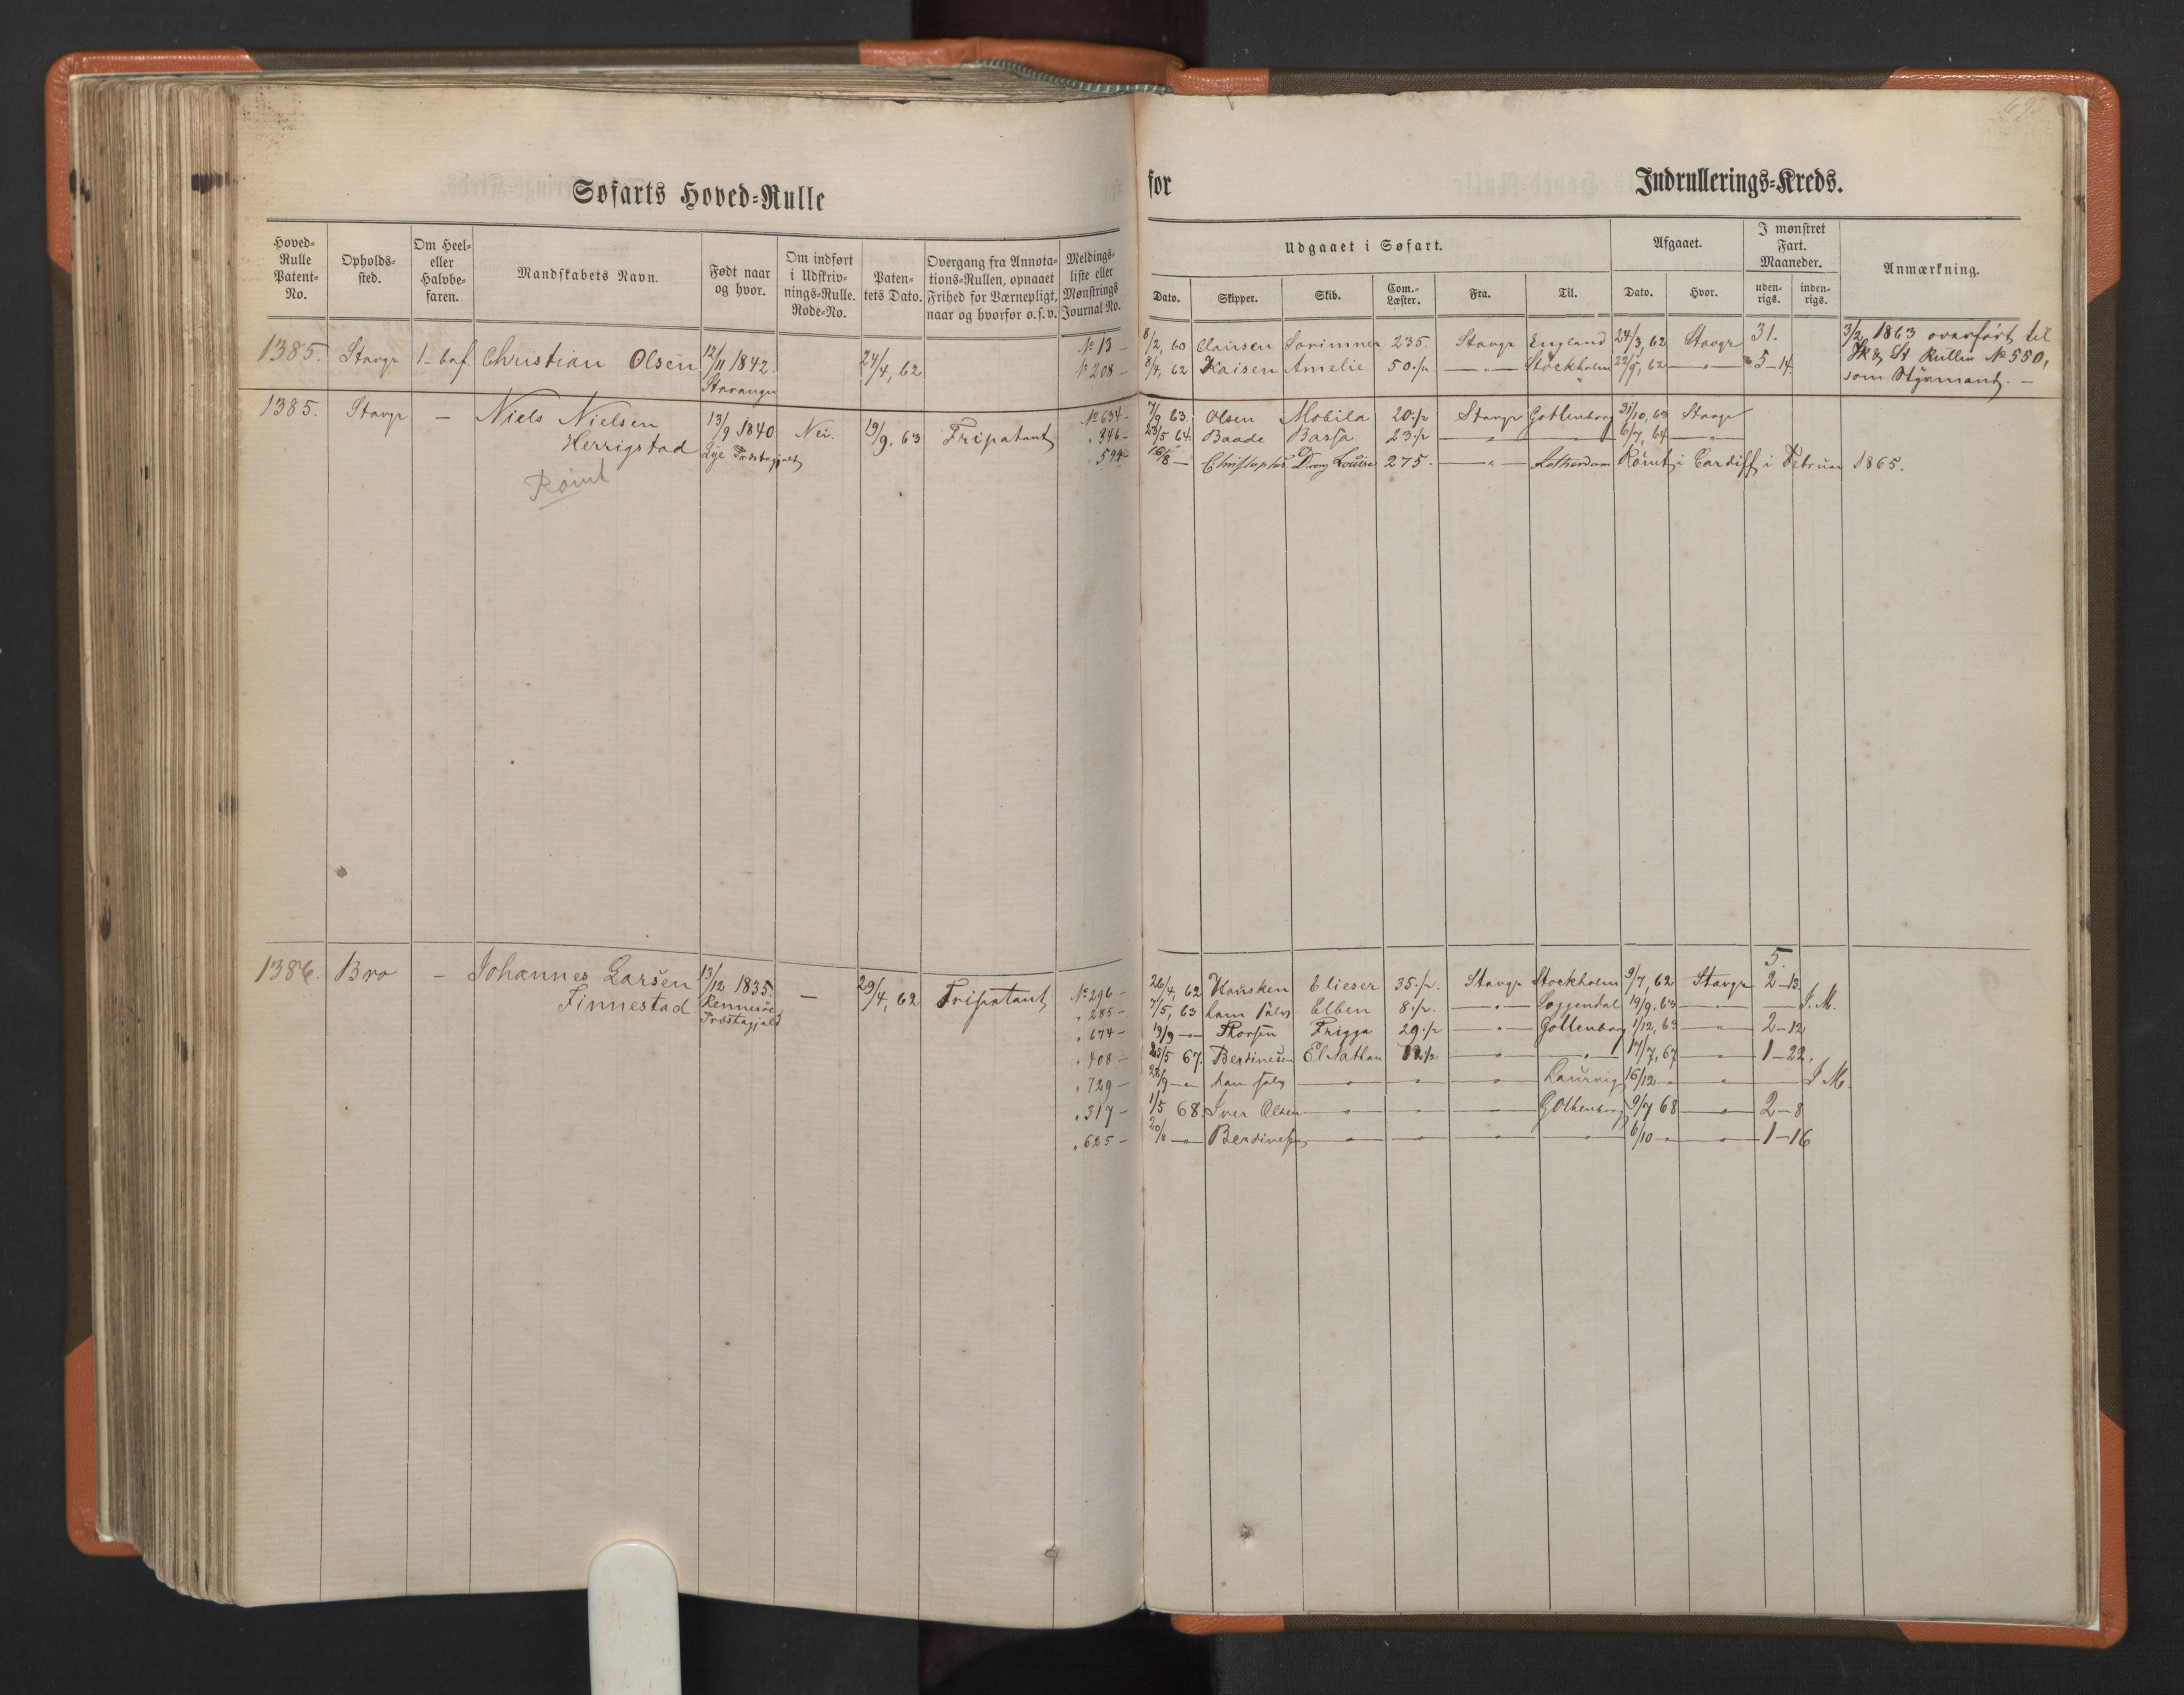 Søfarts Hoved-Rulle
for Indrullerings-Kreds.
Hoved-Rulle Patent-No.
Opholds-sted.
Om Heel- eller Halvbe-faren.
Mandskabets Navn.
Født naar og hvor.
Om indført i Udskriv-nings-Rulle. Rode-No.
Paten-tets Dato.
Overgang fra Annota-tions-Rullen, opnaaet Frihed for Værnepligt, naar og hvorfor o. s. v.
Meldings-liste eller Mønstrings Journal No.
Udgaaet i Søfart.
Afgaaet.
I mønstret Fart. Maaneder.
Anmærkning.
Dato. Skipper. Skib. Com.-Læster. Fra. Til. Dato. Hvor. uden-rigs. inden-rigs.
1385. Stavgr 1 - bef. Christian Olsen 12/11 1842. Stavanger 24/4, 62
No 13 - 8/2, 60 Clausen Sorimner 235. Stavgr England 24/3, 62 Stavgr 31.
No 208 - 8/4, 62 Kaisen Amelie 50 1/2 - " - Stockholm 22/9, 62 - " - 5-14
3/2 1863 overført til
Sk & St Rullen No 550,
som Styrmand. -
1385. Stavgr - Niels Nielsen Herrigstad 13/9 1840 Lye Præstegjeld Nei. 19/9, 63 Fripatent
Rømt
No 634 - 7/9 63. Olsen Mobila 20 1/2 Stavgr Gottenborg 31/10, 63 Stavgr
" 346 - 28/5 64. Baade Bassa 23 1/2 - " - - " - 6/7, 64 - " -
594 - 16/8 - 275. - " - Rømt i Cardiff i Februar 1865.
1386. Bro - Johannes Larsen Finnestad 13/12 1835. Rennesøe Præstegjeld - 29/4, 62 Fripatent
5
No 296 - 26/4, 62 Elieser 35 1/2. Stavgr Stockholm 9/7, 62 Stavgr 2-13
" 285 - 7/5, 63 ham selv Elben 8 1/2. - " - Soggendal 19/9, 63 - " - I. M.
" 674 - 19/9 - " Frigga 29 1/2 - " - Gottenborg 1/12, 63 - " - 2-12
" 408 - 25/5 67. Berdinesen El Nathan - " - - " - 17/7, 67 - " - 1-22.
" 729 - 28/9 - " ham selv - " - - " - - " - Laurvig 16/12 - " - " - I M.
" 317 - 1/5 68. Iver Olsen - " - - " - - " - Gothenborg 9/7 68 - " - 2-8
" 625 - 20/8 - " Berdinesen - " - - " - - " - - " - 6/10 - " - " - 1-16